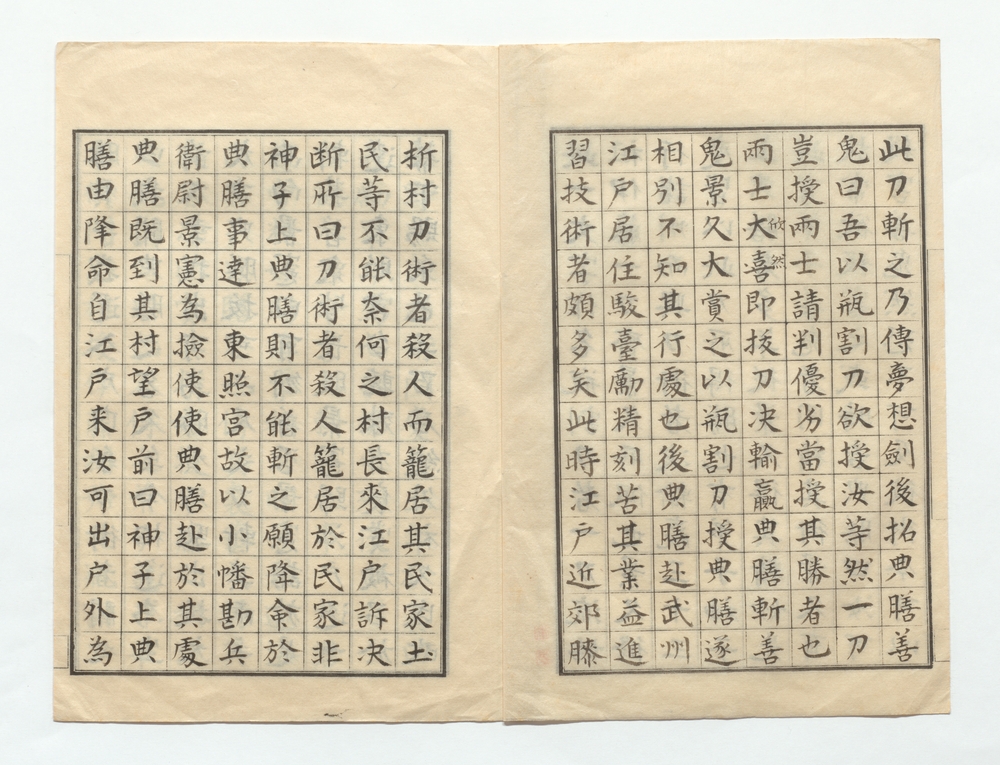 此刀斬之乃傳夢想劍後招典膳善
鬼曰吾以瓶割刀欲授汝等然一刀
豈授兩士請判優劣當授其勝者也
兩士大欣然喜即拔刀决輸贏典膳斬善
鬼景久大賞之以瓶割刀授典膳遂
相別不知其行處也後典膳赴武州
江戸居住駿臺勵精刻苦其業益進
習技術者頗多矣此時江戸近郊膝
折村刀術者殺人而籠居其民家土
民等不能奈何之村長來江戸訴决
断所曰刀術者殺人籠居於民家非
神子上典膳則不能斬之願降命於
典膳事達東照宮故以小幡勘兵
衛尉景憲為撿使使典膳赴於其處
典膳既到其村望戸前曰神子上典
膳由降命自江戸来汝可出户外為